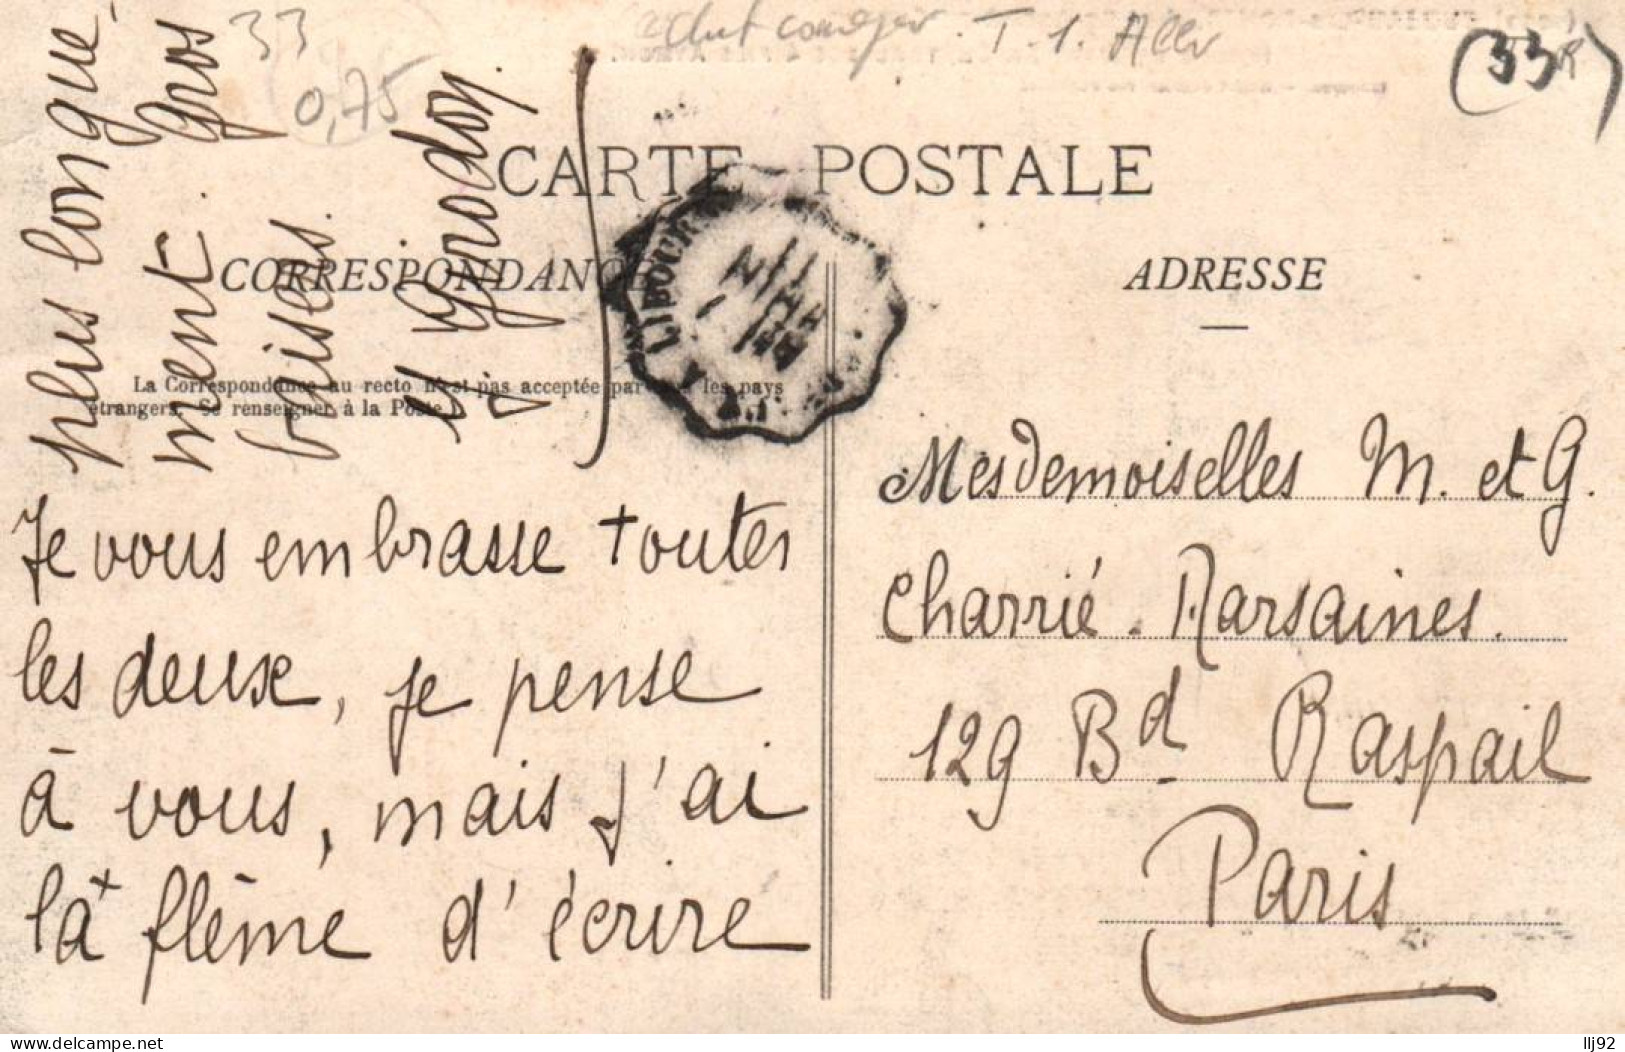 33
0,75
T. 1.
(33)
CARTE POSTALE
CORRESPONDANCE
ADRESSE
La Correspondance au recto n'est pas acceptée par les pays
étrangers. Se renseigner à la Poste.
LIBOURN
Je vous embrasse toutes
les deux, je pense
à vous, mais j'ai
la flême d'écrire
plus longue
ment. Gros
baisers.
Mesdemoiselles M. et G.
Charrié. Marsaines.
129 Bd Raspail
Paris
Delcampe.net
llj92